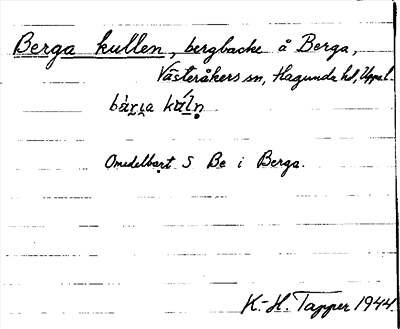 Berga kullen, bergbacke å Berga,
Västeråkers sn, Hagunda hd, Uppsl.
Omedelbart S Be i Berga.
K.-H. Tapper 1944.